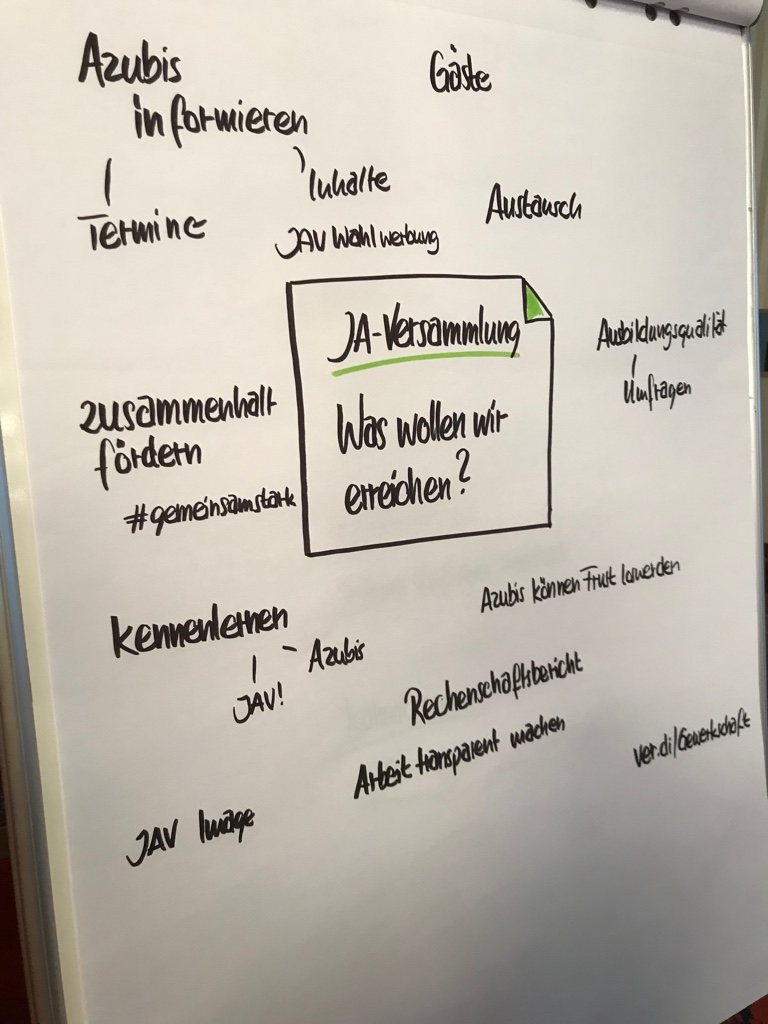 Azubis
informieren
Gäste
Termine
Inhalte
Austausch
JAV Wahlwerbung
JA-Versammlung
Was wollen wir
erreichen?
Ausbildungsqualität
Umfragen
zusammenhalt
fördern
#gemeinsamstark
Azubis können Frust loswerden
Kennenlernen
Azubis
JAV!
Rechenschaftsbericht
Arbeit transparent machen
ver.di/Gewerkschaft
JAV Image